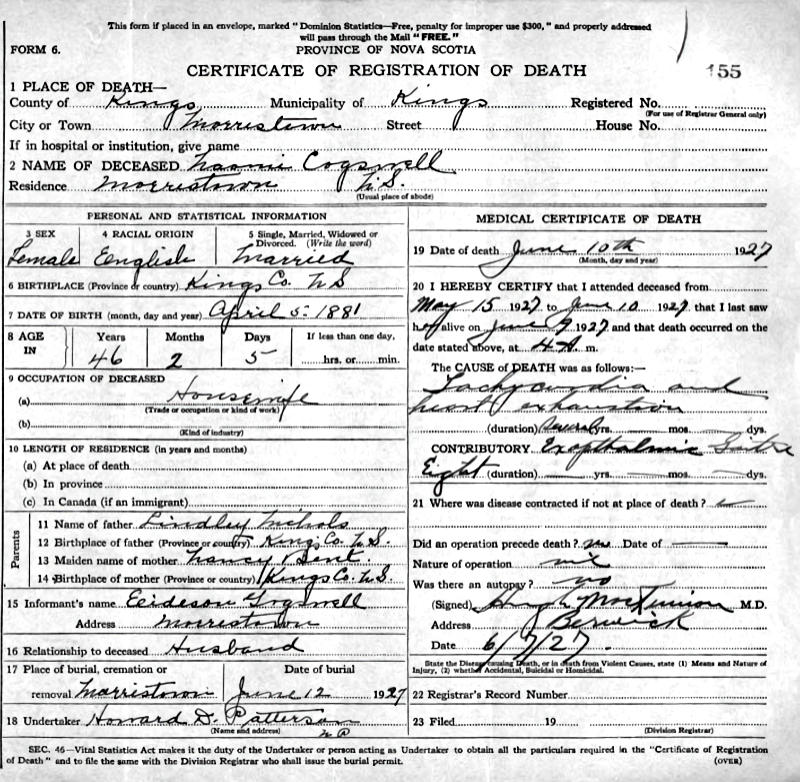 This form if placed in an envelope, marked "Dominion Statistics—Free, penalty for improper use $300," and properly addressed
will pass through the Mail "FREE."
FORM 6. PROVINCE OF NOVA SCOTIA
CERTIFICATE OF REGISTRATION OF DEATH 155
1 PLACE OF DEATH—
County of Kings Municipality of Kings Registered No.
(For use of Registrar General only)
City or Town Morristown Street House No.
If in hospital or institution, give name
2 NAME OF DECEASED Naomi Cogswell
Residence Morristown N.S.
(Usual place of abode)
PERSONAL AND STATISTICAL INFORMATION
3 SEX 4 RACIAL ORIGIN 5 Single, Married, Widowed or Divorced. (Write the word)
Female English Married
6 BIRTHPLACE (Province or country) Kings Co. N S
7 DATE OF BIRTH (month, day and year) April 5 - 1881
8 AGE IN Years Months Days If less than one day,
46 2 5 hrs. or min.
9 OCCUPATION OF DECEASED
(a) Housewife
(Trade or occupation or kind of work)
(b)
(Kind of industry)
10 LENGTH OF RESIDENCE (in years and months)
(a) At place of death
(b) In province
(c) In Canada (if an immigrant)
Parents
11 Name of father Lindley Nichols
12 Birthplace of father (Province or country) Kings Co. N.S.
13 Maiden name of mother Nancy Bent
14 Birthplace of mother (Province or country) Kings Co. N.S.
15 Informant's name Cogswell
Address Morristown
16 Relationship to deceased Husband
17 Place of burial, cremation or removal Morristown Date of burial June 12 1927
18 Undertaker Howard D. Patterson
(Name and address)
MEDICAL CERTIFICATE OF DEATH
19 Date of death June 10th 1927
(Month, day and year)
20 I HEREBY CERTIFY that I attended deceased from
May 15 1927 to June 10 1927 that I last saw
her alive on June 9 1927 and that death occurred on
date stated above, at 4 A. m.
The CAUSE of DEATH was as follows:—
Tachycardia and
heart exhaustion
(duration) Several yrs. mos. dys.
CONTRIBUTORY Exopthalmic Goitre
Eight (duration) yrs. mos. dys.
21 Where was disease contracted if not at place of death?
Did an operation precede death? no Date of
Nature of operation nil
Was there an autopsy? no
(Signed) Hugh MacKinnon M.D.
Address Berwick
Date 6/7/27.
State the Disease causing Death, or in death from Violent Causes, state (1) Means and Nature of
Injury, (2) whether Accidental, Suicidal or Homicidal.
22 Registrar's Record Number
23 Filed 19
(Division Registrar)
SEC. 46—Vital Statistics Act makes it the duty of the Undertaker or person acting as Undertaker to obtain all the particulars required in the "Certificate of Registration
of Death" and to file the same with the Division Registrar who shall issue the burial permit. (OVER)